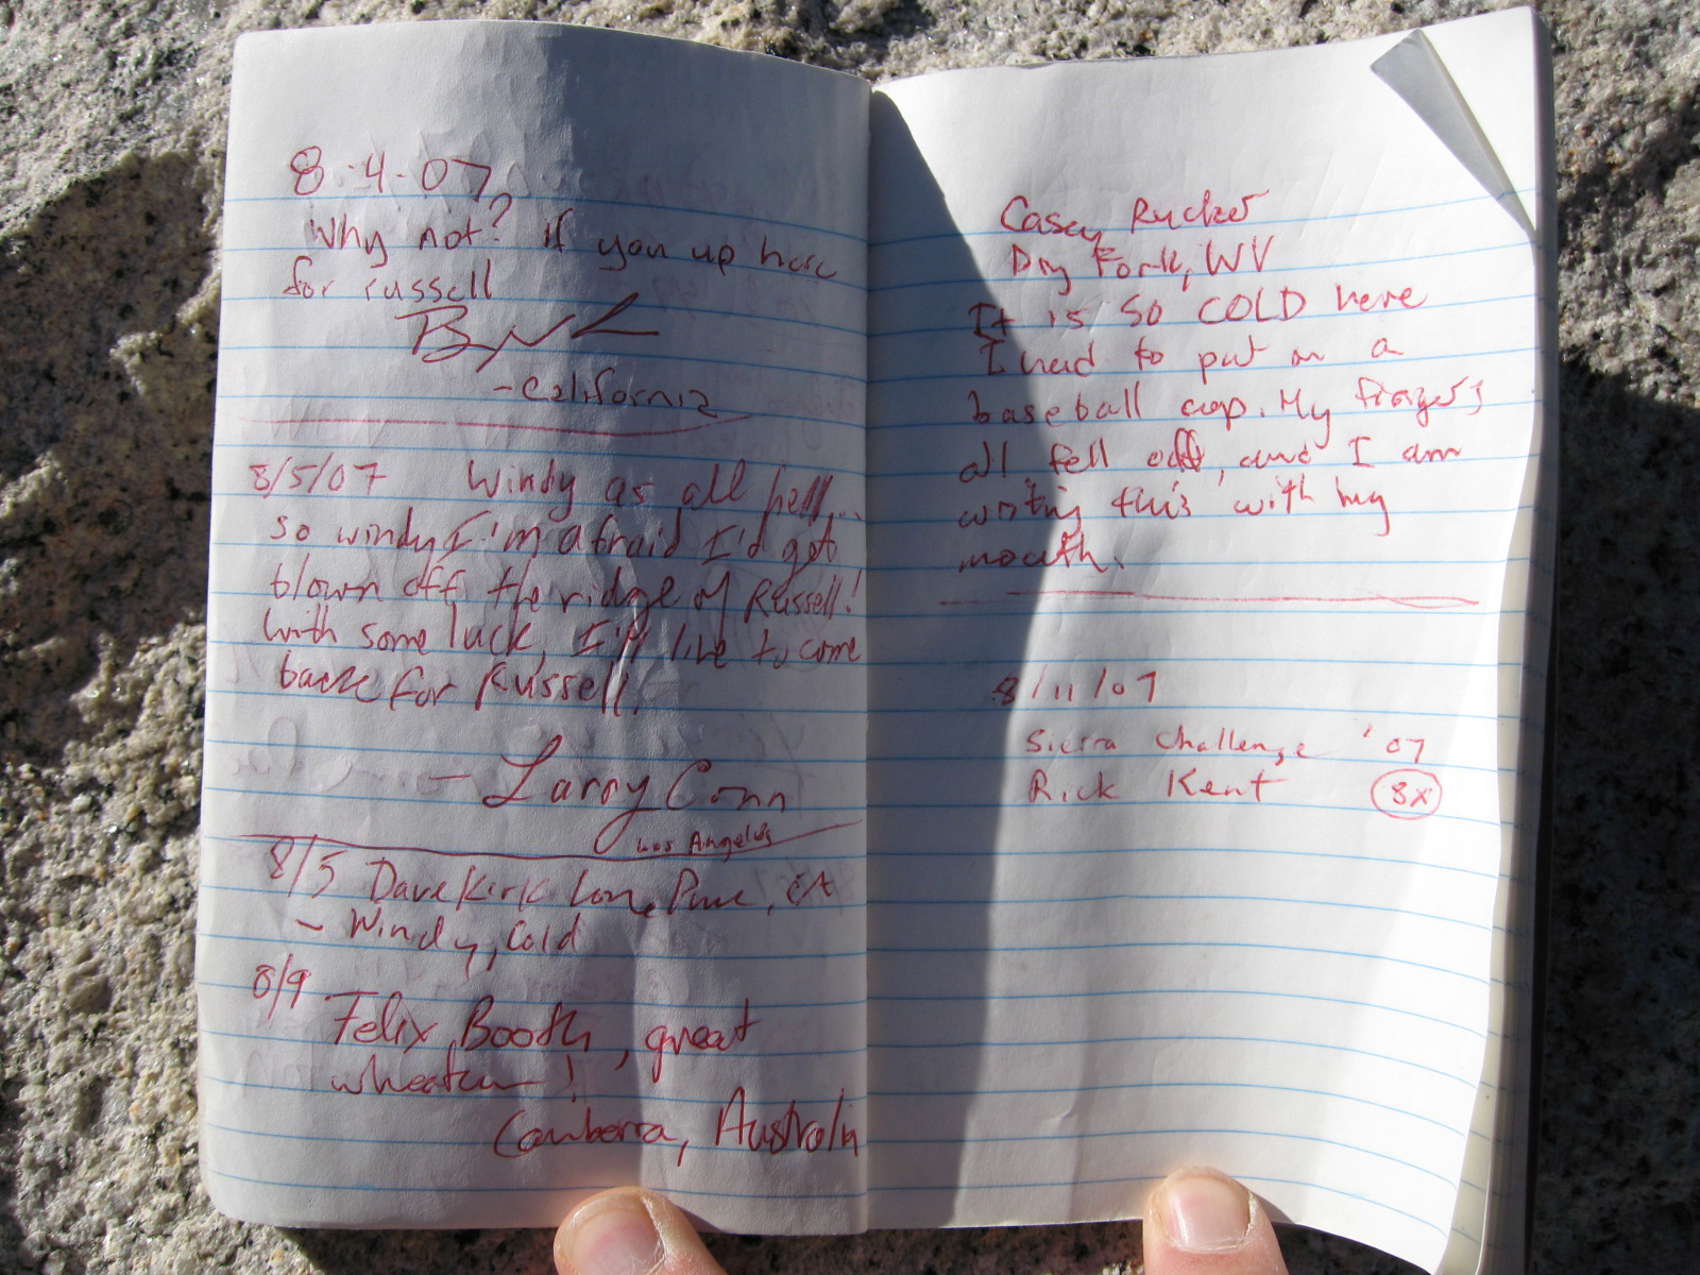 8·4·07
Why not? if you up here
for russell
-California
8/5/07 Windy as all hell...
so windy I'm afraid I'd get
blown off the ridge of Russell!
With some luck, I'll like to come
back for Russell.
- Larry Conn
Los Angeles
8/5 Dave Kirk Lone Pine, CA
- Windy, Cold
8/9
Felix Booth, great
wheather!
Canberra, Australia
Casey Rucker
Dry Fork, WV
It is SO COLD here
I had to put on a
baseball cap. My fingers
all fell off, and I am
writing this with my
mouth.
8/11/07
Sierra Challenge '07
Rick Kent 8x